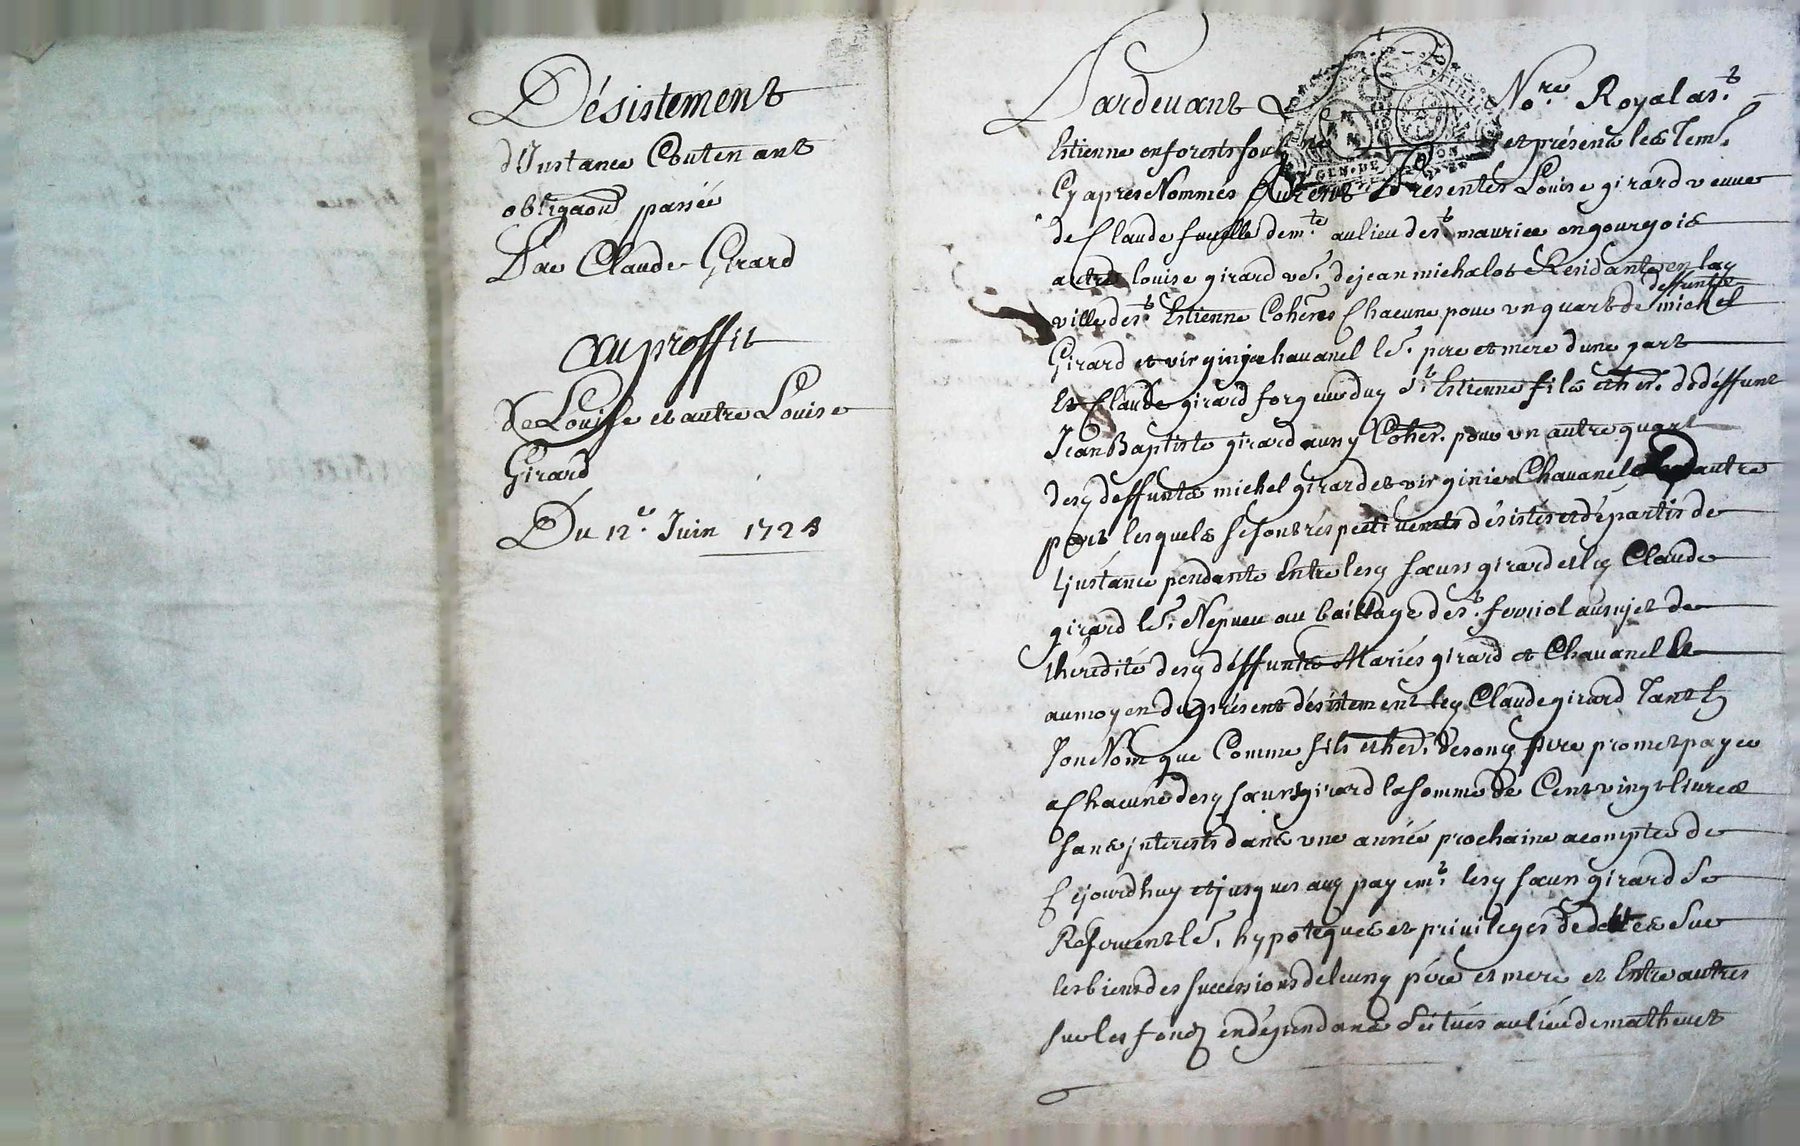 Désistement
d'Instance Contenant
obligaon passée
Par Claude Girard
au proffit
de Louise et autre Louise
Girard
Du 12e. Juin 1724
Pardevant Nore. Royal a st.
Estienne en forests et présens les Tem.
Cy apres Nommés furent Presentes Louise girard veuve
de Claude demte. au lieu de st. maurice en gourgois
autre louise girard ve. de jean michalot Residante en lay
deffunts
ville de st. Estienne Coheres Chacune pour un quart de michel
Girard et virginie chavanel le. pere et mere d'une part
Et Claude girard forgeur duy st. Estienne fils et her. de deffunt
Jean Baptiste girard aussy Coher. pour un autre quart
desy deffunts michel girard et virginie Chavanel d'autre
part lesquels se sont réspectivemts désistés et départis de
L'justance pendante Entre lesy sœurs girard et ley Claude
girard le. Nepveu au bailliage de st. ferriol au sujet de
lhérédité desy déffunts Mariés girard et Chavanel Et
au moyen du présent désistement ley Claude girard Tant En
son Nom que Comme fils et her. de sony père promet payer
a Chacune desy sœurs girard la somme de Cent vingt livres
sans jnterests dans une année prochaine a compter de
Cejourdhuy et jusques auy payemt. lesy sœurs girard se
Reservent le. hypoteques et privileges de dettes sur
les biens des successions de leursy père et mere et Entre autres
sur les fonds en dépendans scitués au lieu de mathevet
GEN. DE LYON